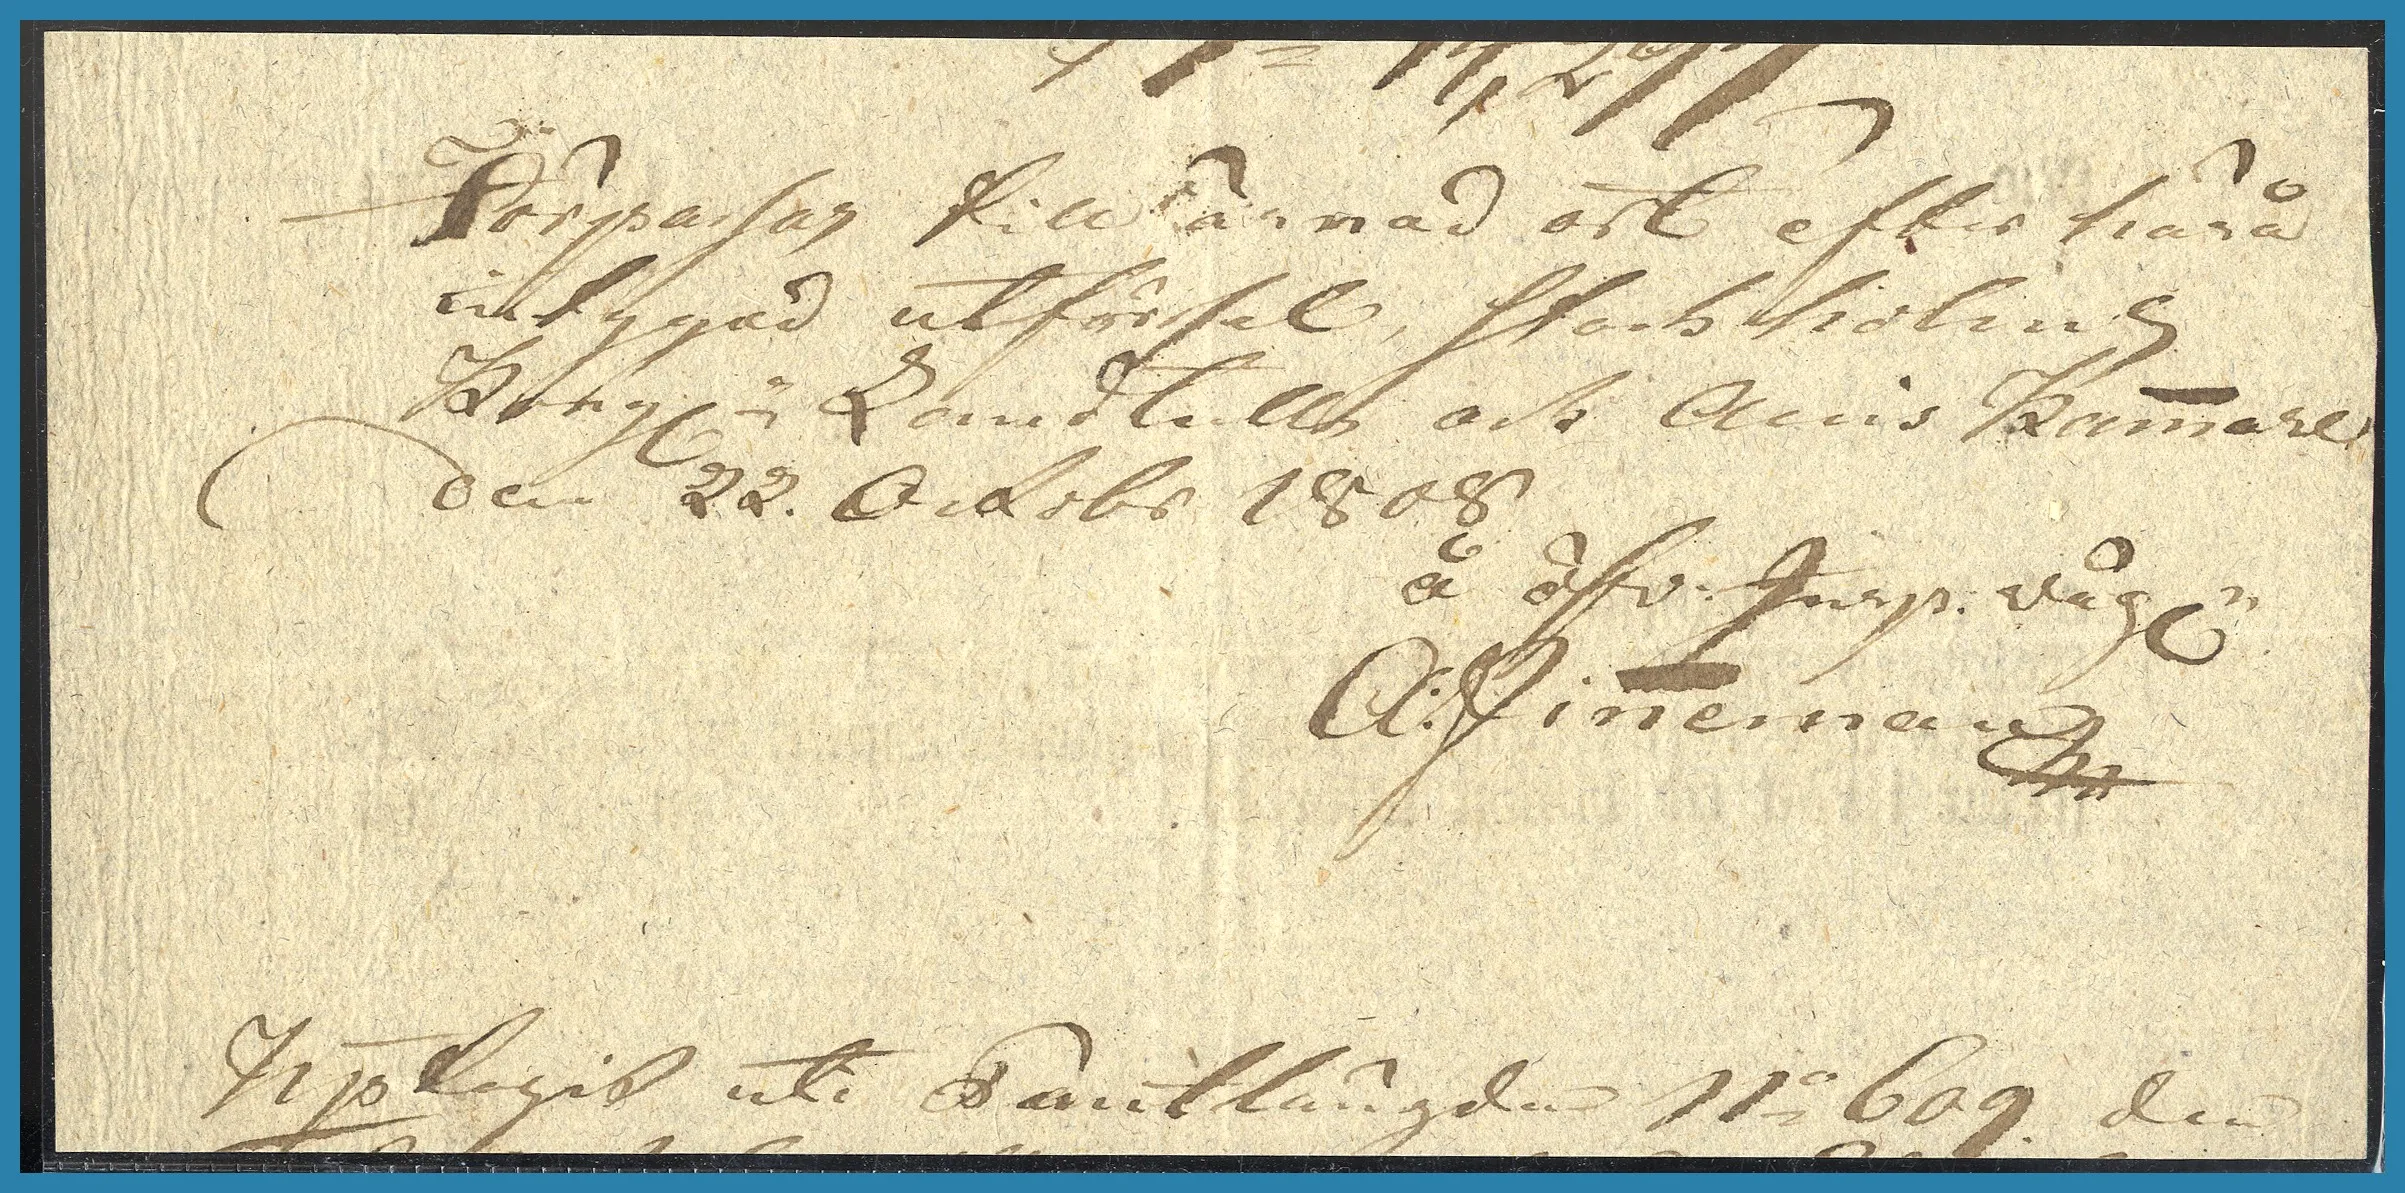 Förpassas till ärnad ort efter härå
intygad utförsel, Stockholms
Kongl:n Landtulls och Accis Kam̄are
den 22. Octobr 1808
å öfv. Insp. vägn
A: Lin̄eman
uti Pantlängden No 609. den